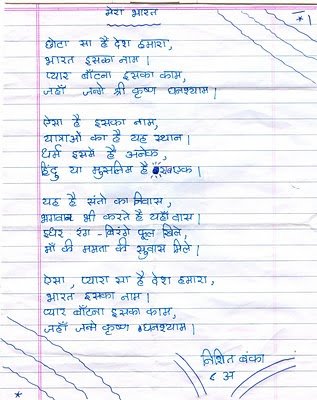 मेरा भारत
छोटा सा है देश हमारा,
भारत इसका नाम।
प्यार बाँटना इसका काम,
जहाँ जन्मे श्री कृष्ण घनश्याम।
ऐसा है इसका नाम,
यात्राओं का है यह स्थान।
धर्म इसमें है अनेक,
हिंदु या मुसलिम है सबएक।
यह है संतो का निवास,
भगवान भी करते है यहाँ वास।
इधर रंग-बिरंगे फूल खिले,
माँ की ममता की सुवास मिले।
ऐसा, प्यारा सा है देश हमारा,
भारत इसका नाम।
प्यार बाँटना इसका काम,
जहाँ जन्मे कृष्ण घनश्याम।
निशित बंका
९ अ